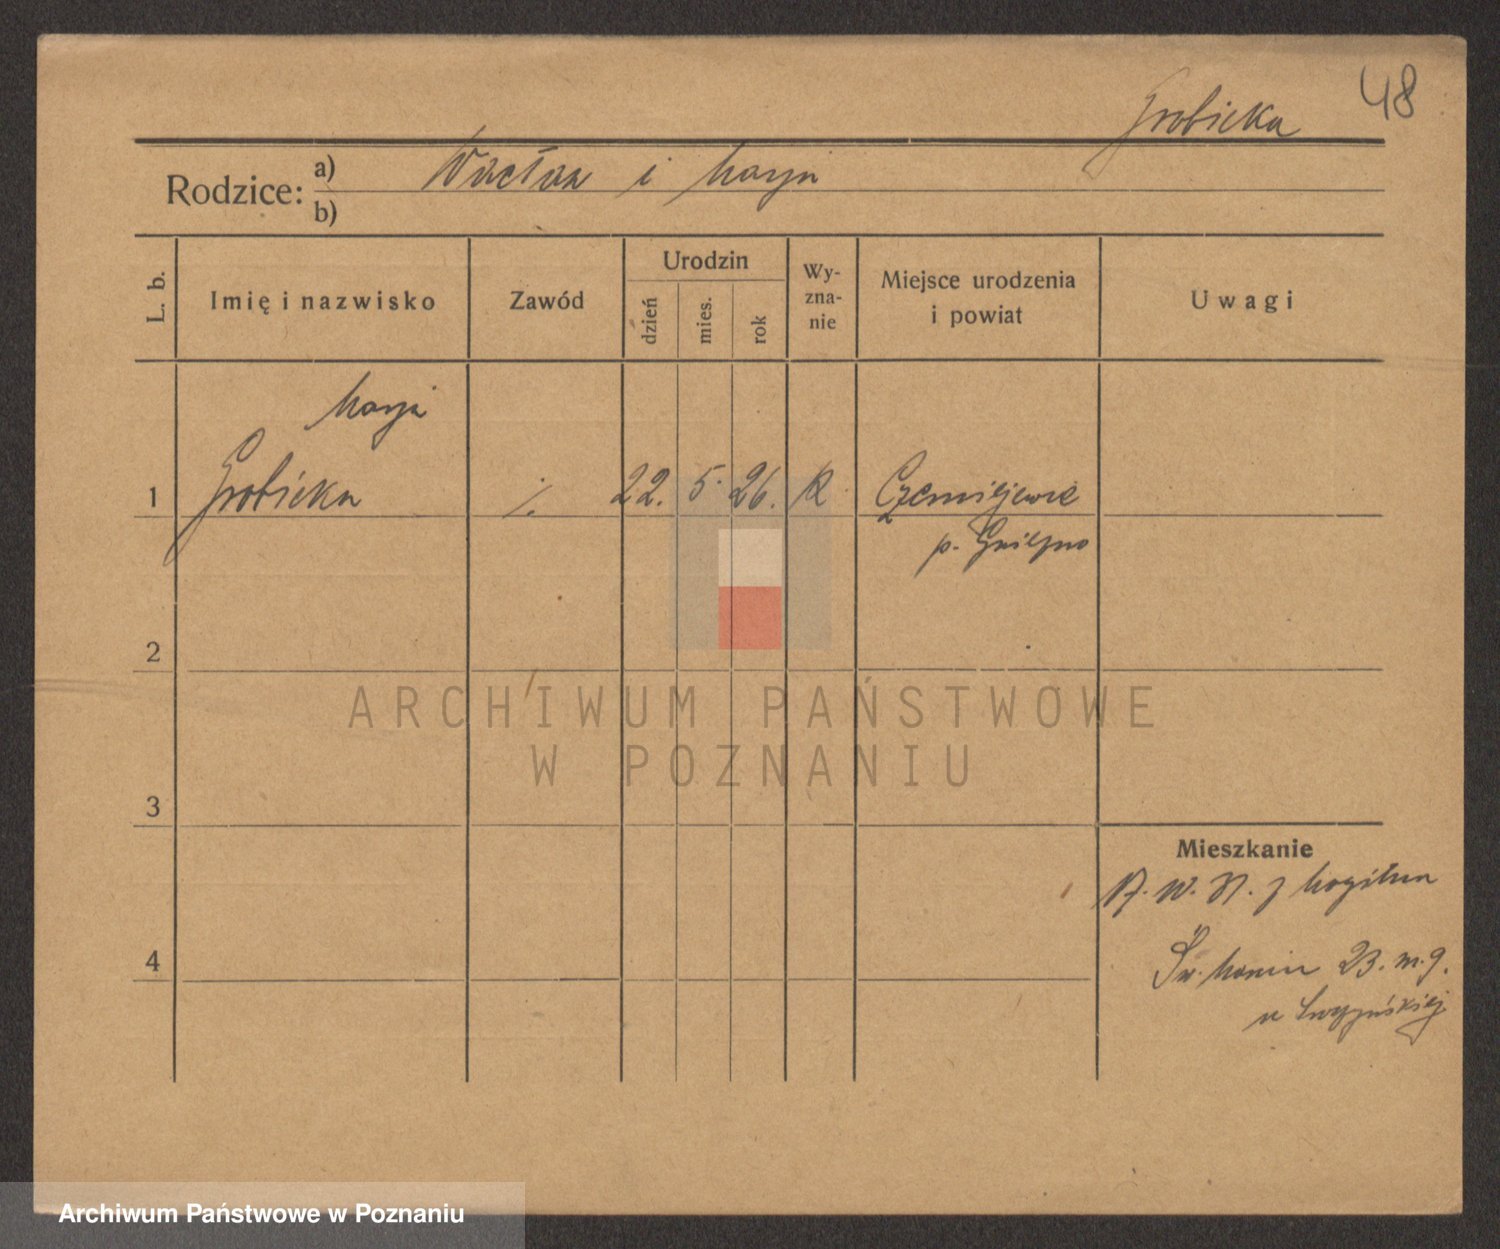 48
Grobicka
Rodzice: a) Wacław i Marja
b)
L. b.
Imię i nazwisko
Zawód
Urodzin
dzień
mies.
rok
Wy-
zna-
nie
Miejsce urodzenia
i powiat
Uwagi
Marja
1 Grobicka ./. 22. 5. 26. R. Czerniejewie
p. Gniezno
2
3
4
Mieszkanie
P. W. N. z Mogilna
Św. Marcin 23. m. 9.
ARCHIWUM PAŃSTWOWE
W POZNANIU
Archiwum Państwowe w Poznaniu